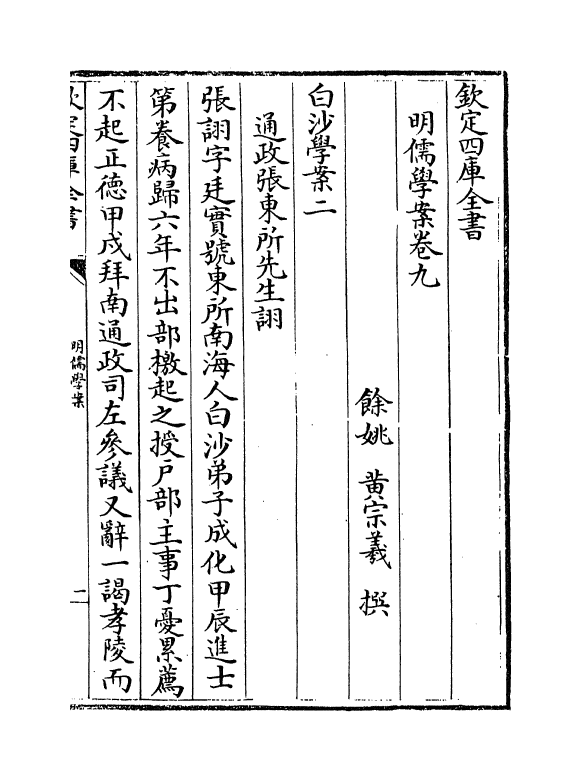 欽定四庫全書
明儒學案卷九
餘姚 黃宗羲 撰
白沙學案二
通政張東所先生詡
張詡字廷實號東所南海人白沙弟子成化甲辰進士
第養病歸六年不出部檄起之授户部主事丁憂累薦
不起正德甲戌拜南通政司左參議又辭一謁孝陵而
欽定四庫全書
明儒學案
二